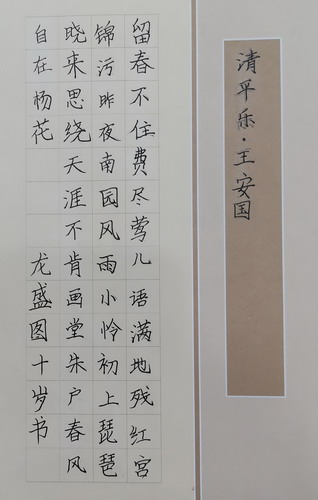 清平乐·王安国
留春不住费尽莺儿语满地残红宫
锦污昨夜南园风雨小怜初上琵琶
晓来思绕天涯不肯画堂朱户春风
自在杨花 龙盛图十岁书